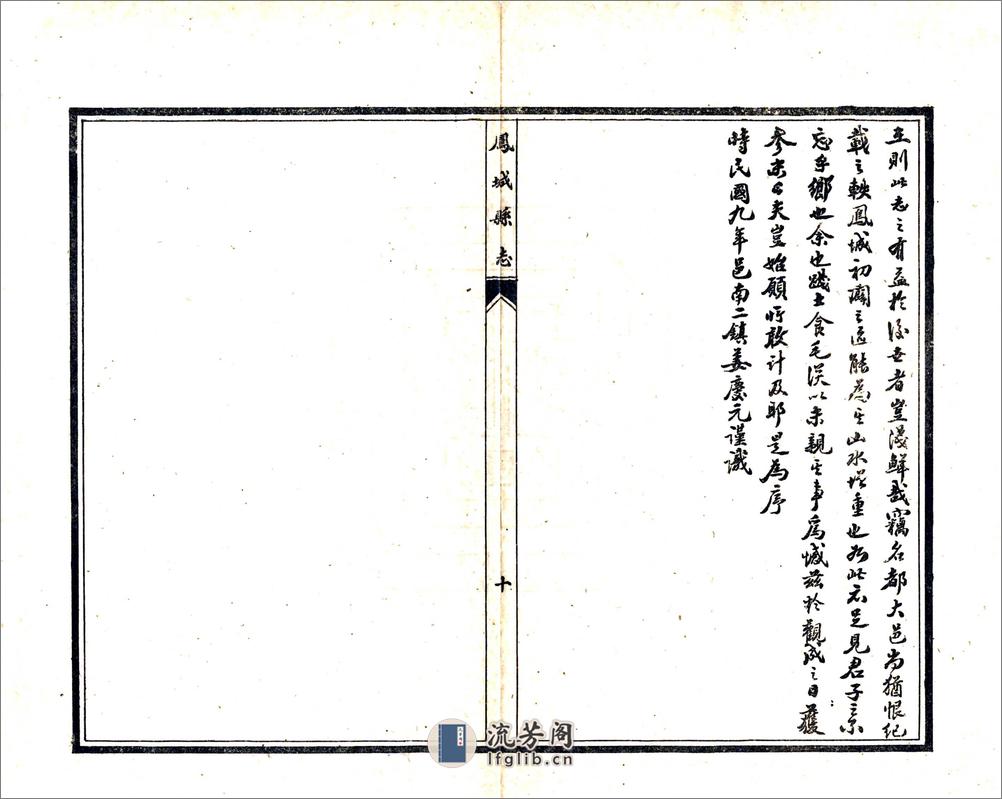 立則此志之有益於後世者豈淺鮮哉竊名都大邑尚猶恨紀
載之軼鳳城初闢之區能為其山水增重也如此亦足見君子之不
忘乎鄉也余也踐土食毛深以未親其事為憾茲於觀成之日獲
參末之失豈始願所敢計及耶是為序
時民國九年邑南二鎮姜慶元謹識
鳳城縣志
十
流芳阁
lfglib.cn